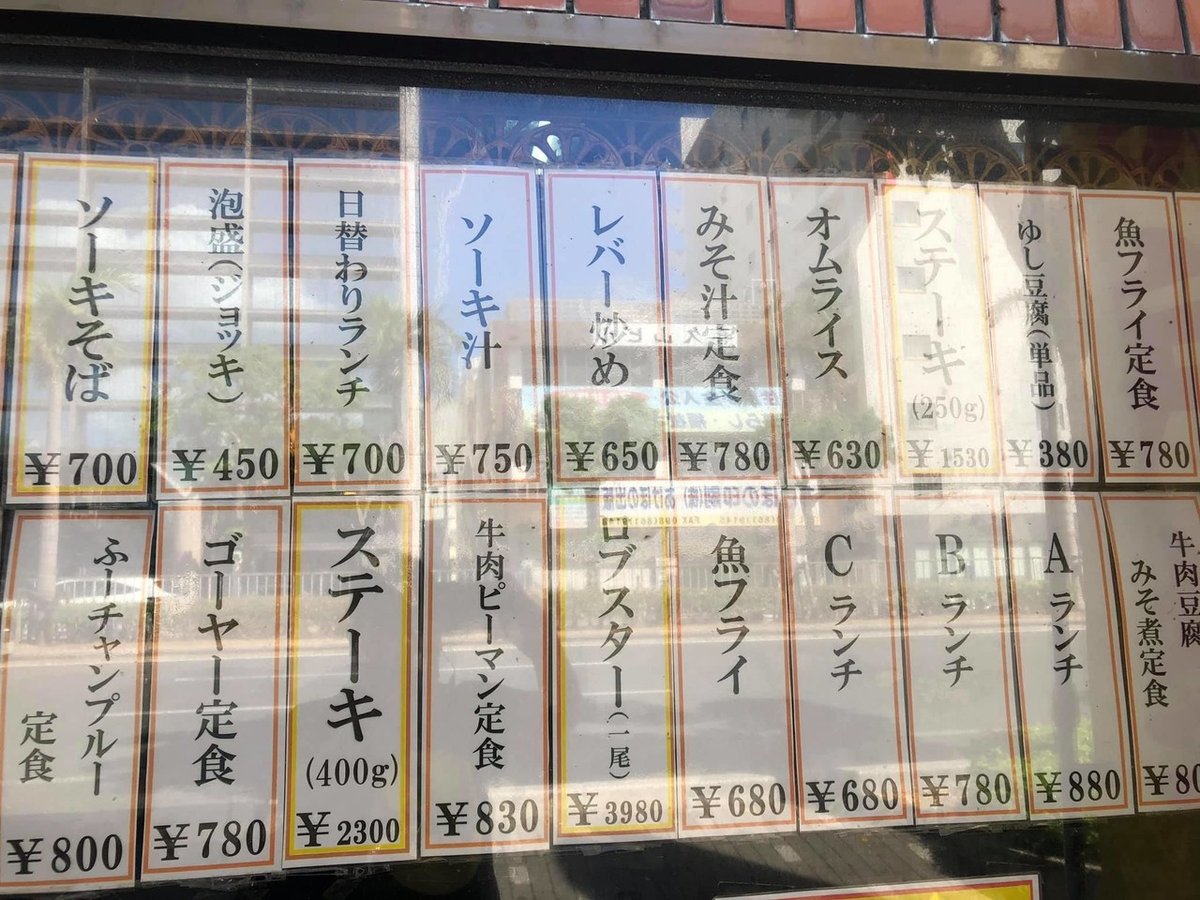 魚フライ定食
¥780
ゆし豆腐(単品)
¥380
ステーキ
(250g)
¥1530
オムライス
¥630
みそ汁定食
¥780
レバー炒め
¥650
ソーキ汁
¥750
日替わりランチ
¥700
泡盛(ジョッキ)
¥450
ソーキそば
¥700
牛肉豆腐
みそ煮定食
¥80
Aランチ
¥880
Bランチ
¥780
Cランチ
¥680
魚フライ
¥680
ロブスター(一尾)
¥3980
牛肉ピーマン定食
¥830
ステーキ
(400g)
¥2300
ゴーヤー定食
¥780
ふーチャンプルー
定食
¥800